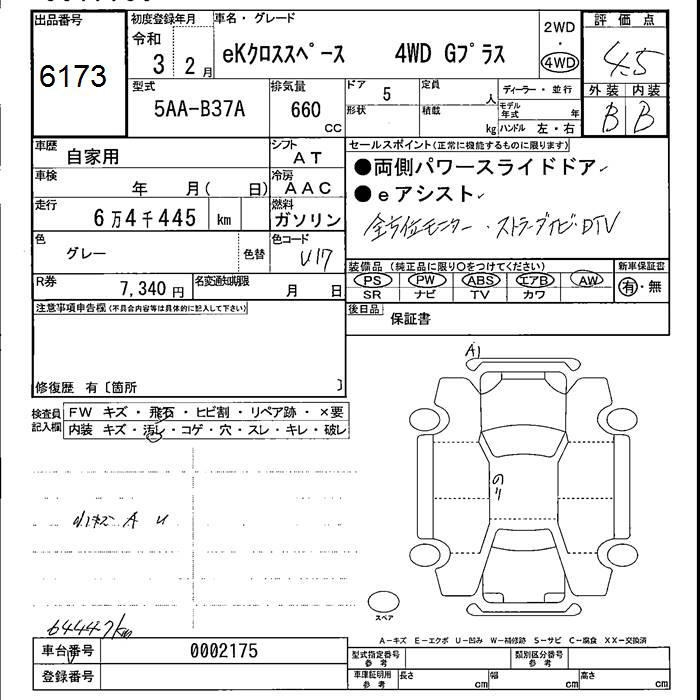 出品番号 初度登録年月 車名・グレード 2WD・4WD 評価点
6173 令和 3 2月 eKクロススペース 4WD Gプラス 4.5
型式 排気量 ドア 定員 ディーラー・並行 外装 内装
5AA-B37A 660 CC 5 人 形状 積載 kg モデル年式 年 ハンドル 左・右 B B
車歴 自家用 シフト AT セールスポイント(正常に機能するものに限ります)
車検 年 月( 日) 冷房 AAC ●両側パワースライドドア
走行 6万4千445 km 燃料 ガソリン ●eアシスト
全方位モニター・ DTV
色 グレー 色替 色コード U17
R券 7,340円 名変通知期限 月 日
装備品(純正品に限り○をつけてください) 新車保証書
PS PW ABS エアB AW 有・無
SR ナビ TV カワ
注意事項申告欄(不具合内容等は具体的に記入して下さい) 後日品 保証書
修復歴 有〔箇所 〕
検査員記入欄 FW キズ・飛石・ヒビ割・リペア跡・×要
内装 キズ・汚レ・コゲ・穴・スレ・キレ・破レ
A1
のリ
小キズ A U
スペア
64447km
A-キズ E-エクボ U-凹み W-補修跡 S-サビ C-腐食 XX-交換済
車台番号 0002175 型式指定番号 参考 類別区分番号 参考
登録番号 車庫証明用 参考 長さ cm 幅 cm 高さ cm